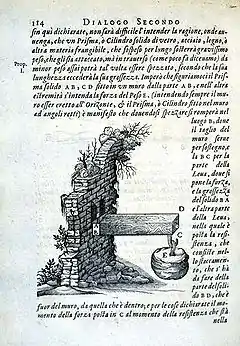 114 DIALOGO SECONDO
sin qui dichiarate, non sarà difficile l'intender la ragione, onde au-
uenga, che vn Prisma, ò Cilindro solido di vetro, acciaio, legno, ò
altra materia frangibile, che sospeso per lungo sosterrà grauissimo
peso, che gli sia attaccato, mà in trauerso (come poco fà diceuamo) da
minor peso assai potrà tal volta essere spezzato, secondo che la sua
lunghezza eccederà la sua grossezza. Imperò che figuriamoci il Pris-
Prop.
I.
ma solido AB, CD fitto in vn muro dalla parte AB, e nell'altra
estremità s'intenda la forza del Peso E, (intendendo sempre il mu-
ro esser eretto all'Orizonte, & il Prisma, ò Cilindro fitto nel muro
ad angoli retti) è manifesto che douendosi spezzare si romperà nel
luogo B, doue
il taglio del
muro serue
per sostegno, e
la BC per la
parte della
Leua, doue si
pone la forza,
e la grossezza
del solido BA
è l'altra parte
della Leua,
nella quale è
posta la resi-
stenza, che
consiste nello
staccamento,
che s'hà da
fare della par-
te del solido
BD, che è
fuor del muro, da quella che è dentro; e per le cose dichiarate il mo-
mento della forza posta in C al momento della resistenza che stà
nella
A
B
D
C
E